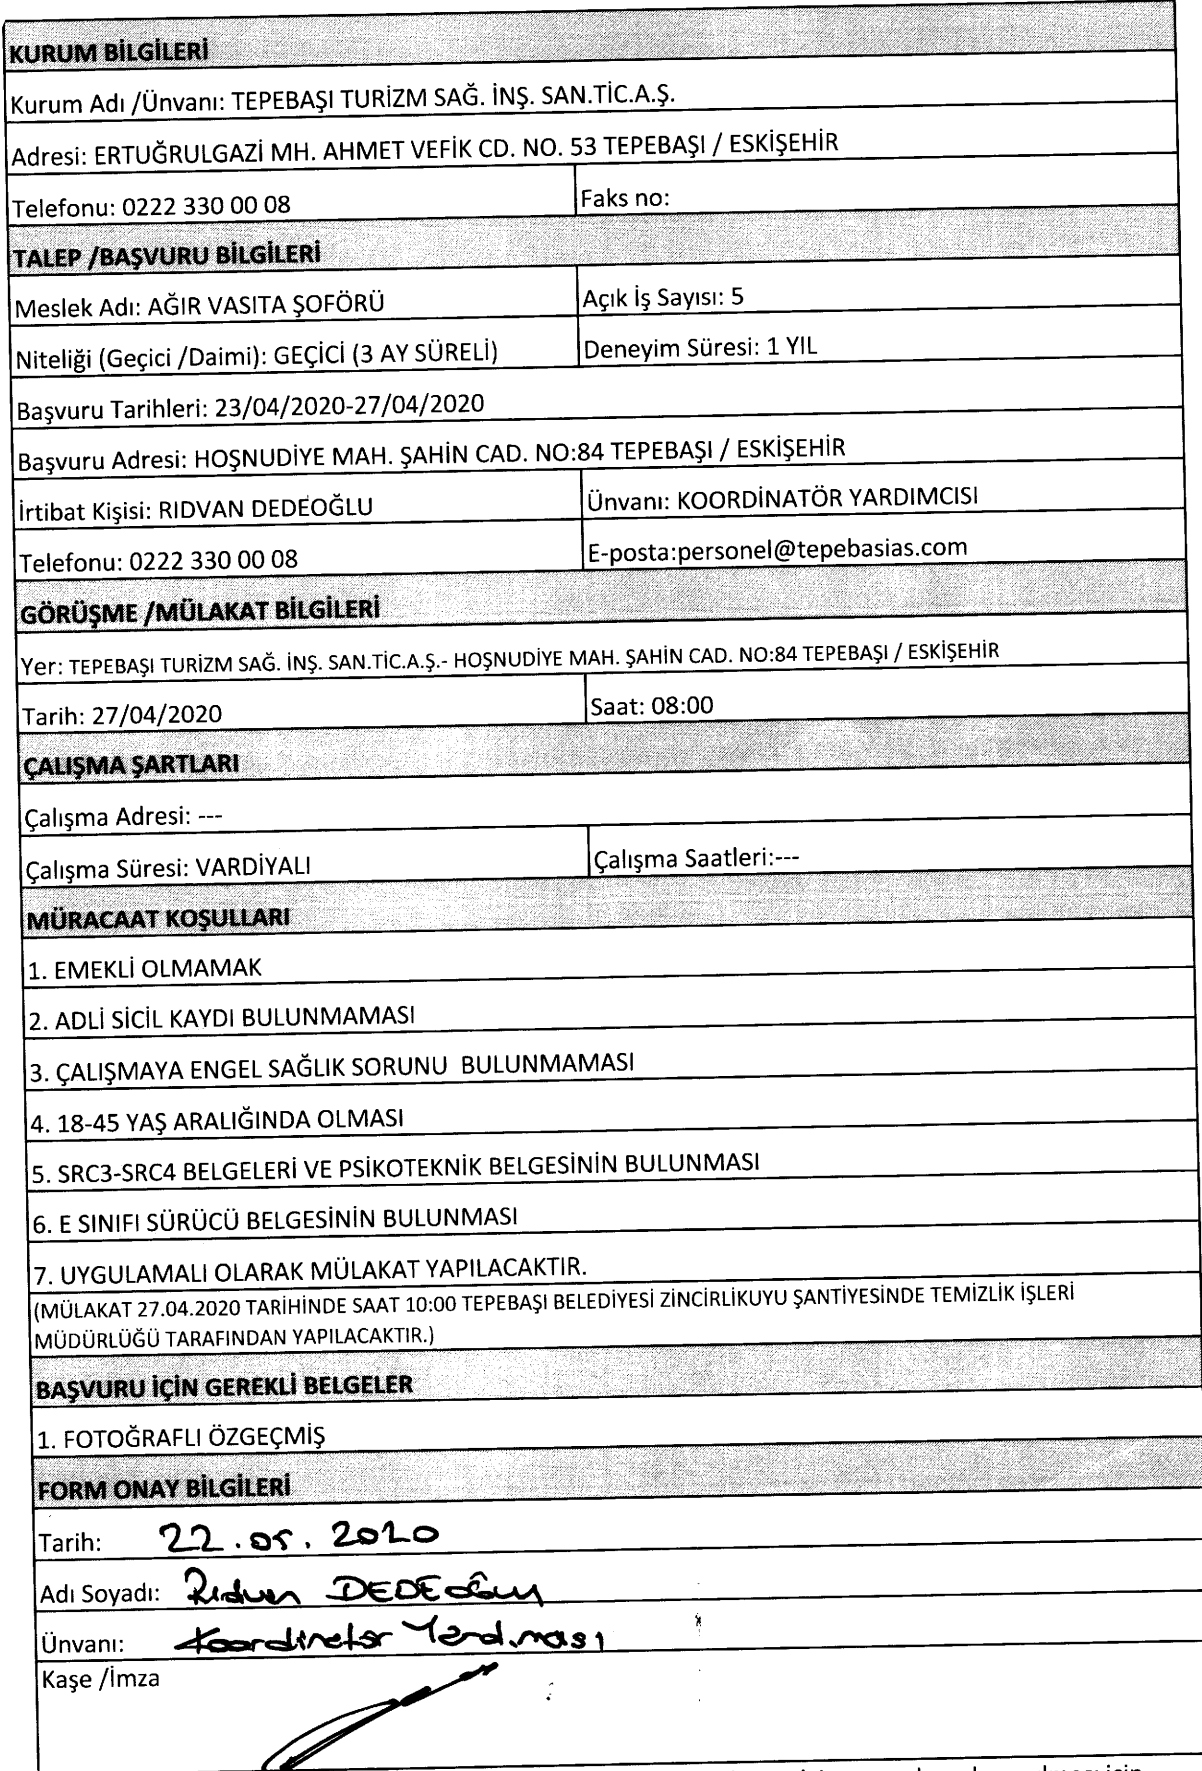 KURUM BİLGİLERİ
Kurum Adı /Ünvanı: TEPEBAŞI TURİZM SAĞ. İNŞ. SAN.TİC.A.Ş.
Adresi: ERTUĞRULGAZİ MH. AHMET VEFİK CD. NO. 53 TEPEBAŞI / ESKİŞEHİR
Telefonu: 0222 330 00 08 Faks no:
TALEP /BAŞVURU BİLGİLERİ
Meslek Adı: AĞIR VASITA ŞOFÖRÜ Açık İş Sayısı: 5
Niteliği (Geçici /Daimi): GEÇİCİ (3 AY SÜRELİ) Deneyim Süresi: 1 YIL
Başvuru Tarihleri: 23/04/2020-27/04/2020
Başvuru Adresi: HOŞNUDİYE MAH. ŞAHİN CAD. NO:84 TEPEBAŞI / ESKİŞEHİR
İrtibat Kişisi: RIDVAN DEDEOĞLU Ünvanı: KOORDİNATÖR YARDIMCISI
Telefonu: 0222 330 00 08 E-posta:personel@tepebasias.com
GÖRÜŞME /MÜLAKAT BİLGİLERİ
Yer: TEPEBAŞI TURİZM SAĞ. İNŞ. SAN.TİC.A.Ş.- HOŞNUDİYE MAH. ŞAHİN CAD. NO:84 TEPEBAŞI / ESKİŞEHİR
Tarih: 27/04/2020 Saat: 08:00
ÇALIŞMA ŞARTLARI
Çalışma Adresi: ---
Çalışma Süresi: VARDİYALI Çalışma Saatleri:---
MÜRACAAT KOŞULLARI
1. EMEKLİ OLMAMAK
2. ADLİ SİCİL KAYDI BULUNMAMASI
3. ÇALIŞMAYA ENGEL SAĞLIK SORUNU BULUNMAMASI
4. 18-45 YAŞ ARALIĞINDA OLMASI
5. SRC3-SRC4 BELGELERİ VE PSİKOTEKNİK BELGESİNİN BULUNMASI
6. E SINIFI SÜRÜCÜ BELGESİNİN BULUNMASI
7. UYGULAMALI OLARAK MÜLAKAT YAPILACAKTIR.
(MÜLAKAT 27.04.2020 TARİHİNDE SAAT 10:00 TEPEBAŞI BELEDİYESİ ZİNCİRLİKUYU ŞANTİYESİNDE TEMİZLİK İŞLERİ
MÜDÜRLÜĞÜ TARAFINDAN YAPILACAKTIR.)
BAŞVURU İÇİN GEREKLİ BELGELER
1. FOTOĞRAFLI ÖZGEÇMİŞ
FORM ONAY BİLGİLERİ
Tarih: 22.05.2020
Adı Soyadı: Rıdvan DEDEoğlu
Ünvanı: Koordinatör Yardımcısı
Kaşe /İmza